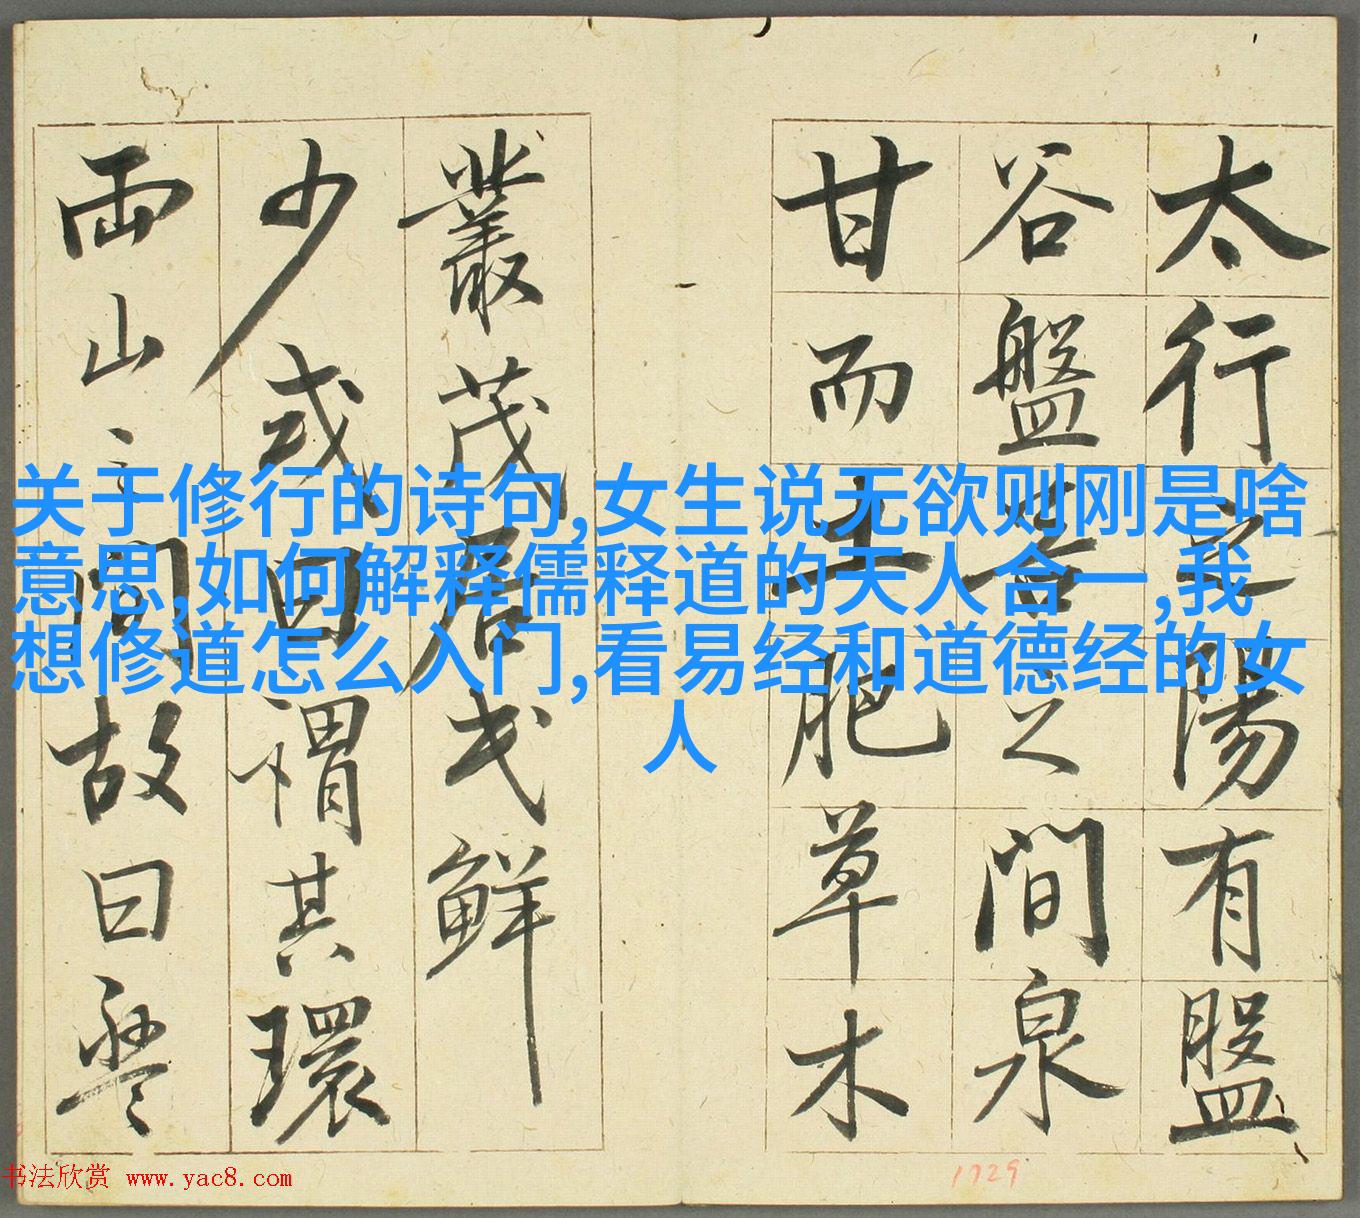 关于修行的诗句,女生说无欲则刚是啥
意思,如何解释儒释道的天人合一,我
想修道怎么入门,看易经和道德经的女
人
太行之陽有盤
谷盤谷之間泉
甘而土肥草木
叢茂居民鮮
少或曰謂其環
兩山之間故曰盤
书法欣赏 www.yac8.com
1729